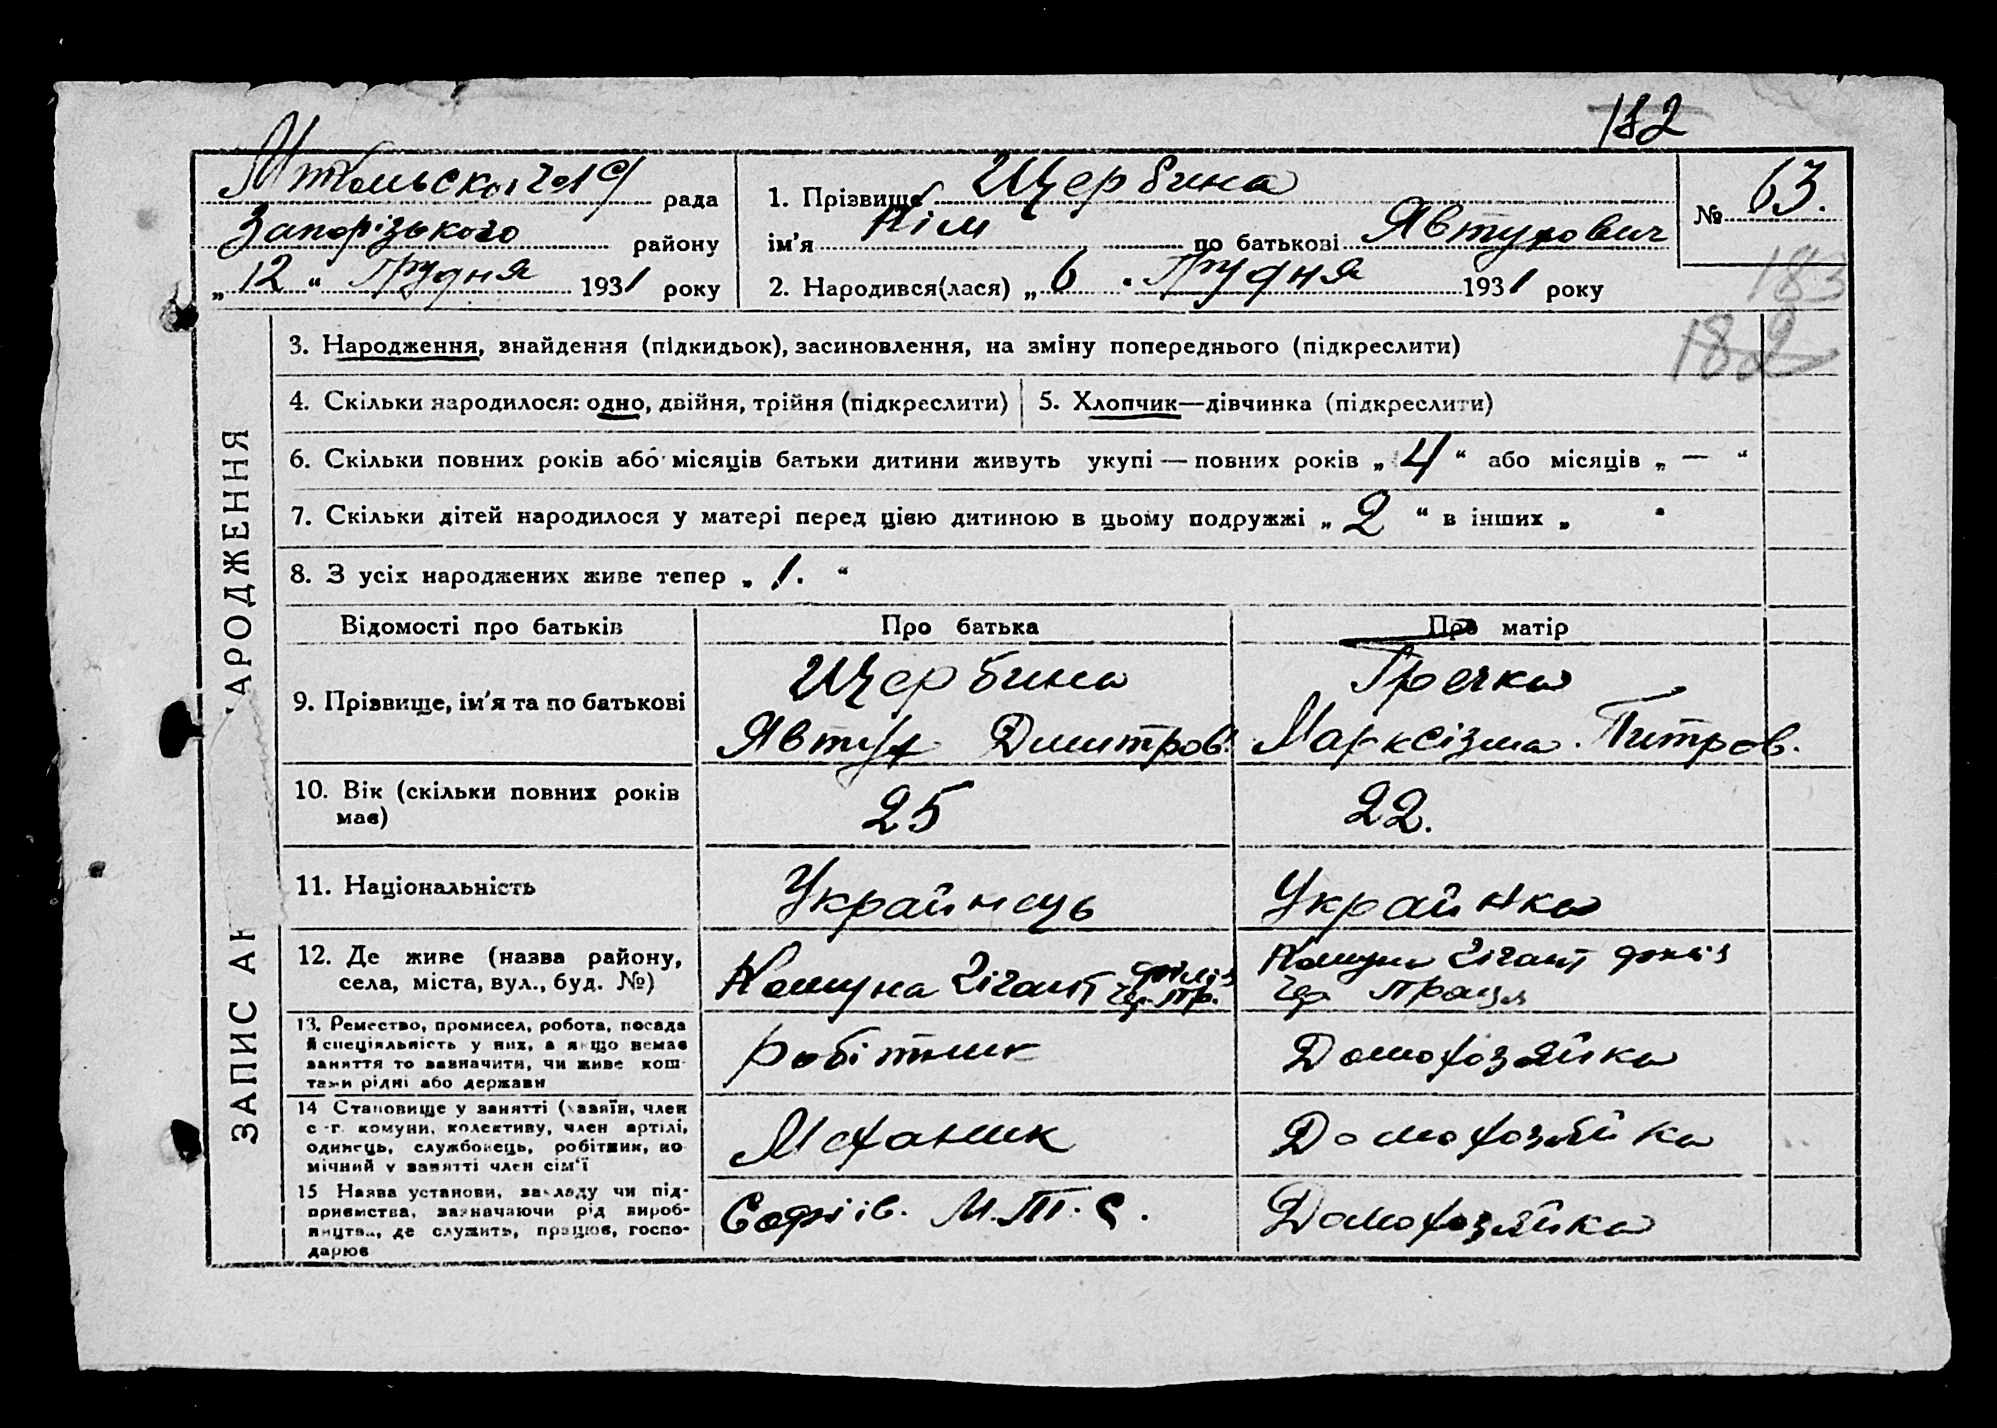 182
рада
Запорізького району
„ 12 “ Грудня 1931 року
1. Прізвище Щербина
ім’я Кім по батькові Явтухович
2. Народився(лася) „ 6 “ Грудня 1931 року
№ 63.
183
182
ЗАПИС АК НАРОДЖЕННЯ
3. Народження, знайдення (підкидьок), засиновлення, на зміну попереднього (підкреслити)
4. Скільки народилося: одно, двійня, трійня (підкреслити)
5. Хлопчик—дівчинка (підкреслити)
6. Скільки повних років або місяців батьки дитини живуть укупі — повних років „ 4 “ або місяців „ — “
7. Скільки дітей народилося у матері перед цією дитиною в цьому подружжі „ 2 “ в інших „ “
8. З усіх народжених живе тепер „ 1. “
Відомості про батьків
Про батька
Про матір
9. Прізвище, ім’я та по батькові
Щербина
Явтух Дмитров.
Гречка
Марксізма. Питров.
10. Вік (скільки повних років має)
25
22.
11. Національність
Украйнець
Украйнка
12. Де живе (назва району,
села, міста, вул., буд. №)
Комуна Гігант
Комуна Гігант
Праця
13. Ремество, промисел, робота, посада
й спеціяльність у них, а якщо немає
заняття то зазначити, чи живе кош-
тами рідні або держави
робітник
Домохозяйка
14 Становище у занятті (хазяїн, член
с.-г. комуни, колективу, член артілі,
одинець, службовець, робітник, по-
мічний у занятті член сім’ї
Механик
Домохозяйка
15 Назва установи, закладу чи під-
приємства, зазначаючи рід вироб-
ництва, де служить, працює, госпо-
дарює
Софіів. М.Т.С.
Домохозяйка